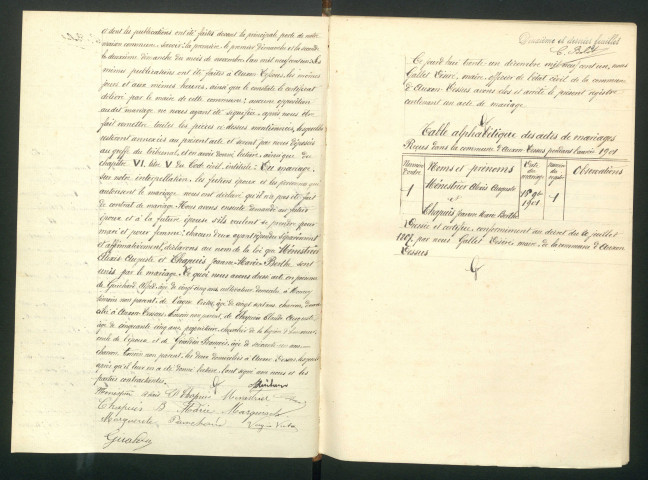 et dont les publications ont été faites devant la principale porte de notre
maison commune, savoir: la première, le premier dimanche et la seconde
le deuxième dimanche du mois de novembre mil neuf cent un; les
mêmes publications ont été faites à les mêmes
jours et aux mêmes heures, ainsi que le constate le certificat
délivré par le maire de cette commune; aucune opposition
audit mariage ne nous ayant été signifiée, après nous être
fait remettre toutes les pièces ci dessus mentionnées, lesquelles
resteront annexées au présent acte et seront par nous déposées
au greffe du tribunal, et en avoir donné lecture, ainsi que du
chapitre VI, titre V du Code civil, intitulé: Du mariage,
sur notre interpellation, les futurs époux et les personnes qui
autorisent le mariage nous ont déclaré qu'il n'a pas été fait
de contrat de mariage. Nous avons ensuite demandé au futur
époux et à la future épouse s'ils veulent se prendre pour
mari et pour femme: chacun d'eux ayant répondu séparément
et affirmativement, déclarons au nom de la loi que Ménétrier
Alexis Auguste et Chapuis Jeanne Marie Berthe sont
unis par le mariage. De quoi nous avons dressé acte en présence
de Guichard Alfred, âgé de vingt cinq ans, cultivateur, domicilié à
témoin non parent, de âgé de vingt sept ans, charron, domi-
cilié à témoin non parent, de Chapuis Claude Auguste
âgé de cinquante cinq ans, propriétaire, chevalier de la légion d'honneur
oncle de l'épouse, et de François, âgé de soixante ans
charron, témoin non parent, les deux domiciliés à lesquels
après qu'il leur en a été donné lecture, ont signé avec nous et les
parties contractantes.
Chapuis Ménétrier
Chapuis B. Marie Marguerite
Marguerite
Deuxième et dernier feuillet
Ce jourd'hui trente un décembre mil neuf cent un, nous
Gallet Désiré, maire, officier de l'état civil de la commune
d' avons clos et arrêté le présent registre
contenant un acte de mariage.
Table alphabétique des actes de mariages
Reçus dans la commune d' pendant l'année 1901
Numéros d'ordre Noms et prénoms Date du mariage Numéro du registre Observations
1 Ménétrier Alexis Auguste 1901 1
et
Chapuis Jeanne Marie Berthe
Dressée et certifiée, conformément au décret du 20 juillet
1807, par nous Gallet Désiré maire de la commune d'